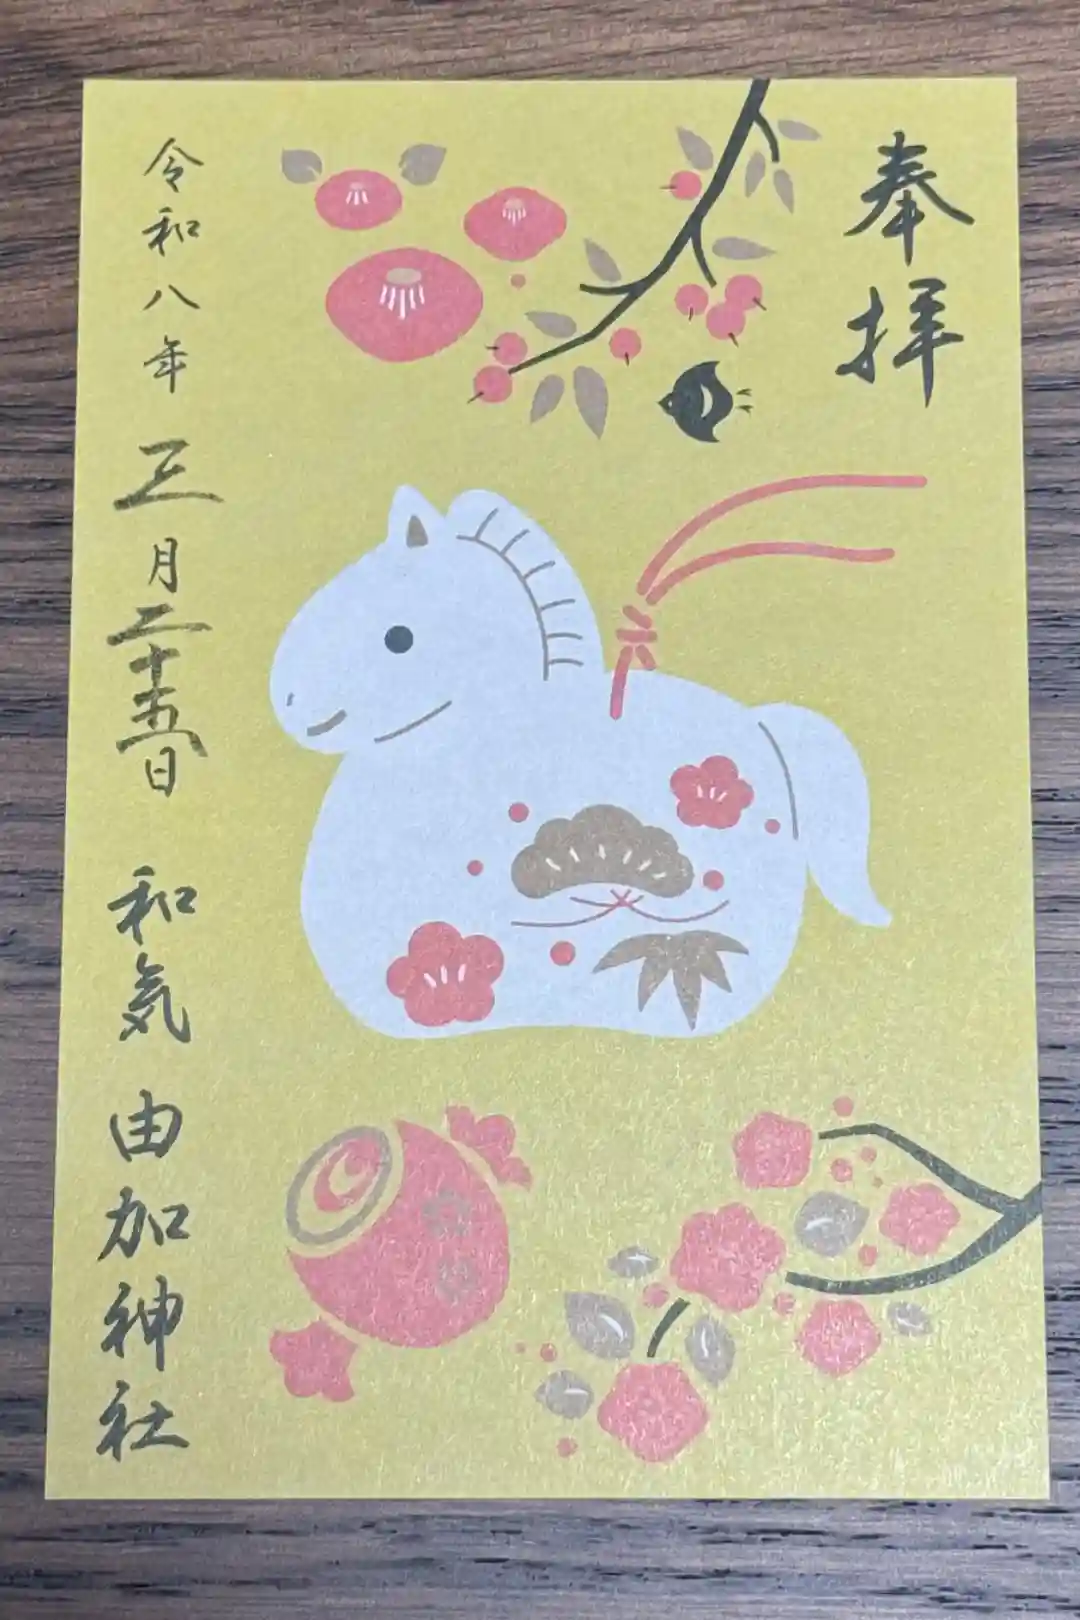 奉拝
令和八年三月二十五日
和気由加神社